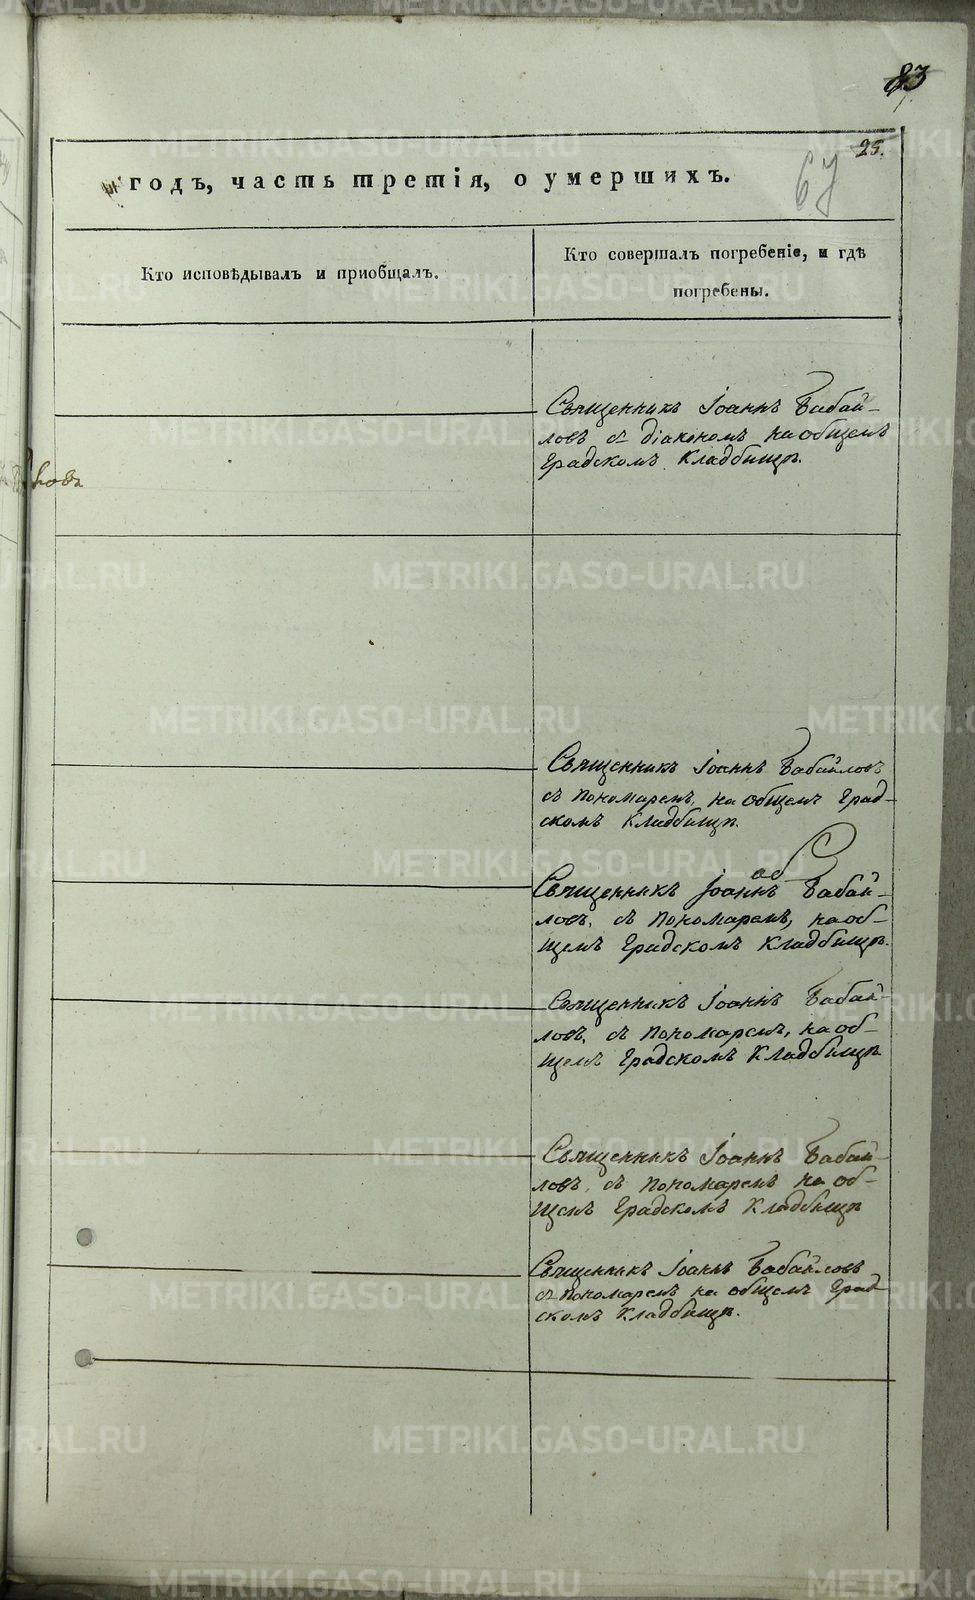 83
25.
67
годъ, часть третія, о умершихъ.
Кто исповѣдывалъ и приобщалъ.
Кто совершалъ погребеніе, и гдѣ
погребены.
Священникъ Іоаннъ Бабай-
ловъ съ діакономъ на общемъ
Градскомъ Кладбищѣ.
ковъ
Священникъ Іоаннъ Бабайловъ
съ пономаремъ, на общемъ Град-
скомъ Кладбищѣ.
Священникъ Іоаннъ Бабай-
ловъ, съ пономаремъ, на об-
щемъ Градскомъ Кладбищѣ.
Священникъ Іоаннъ Бабай-
ловъ, съ пономаремъ, на об-
щемъ Градскомъ Кладбищѣ
Священникъ Іоаннъ Бабай-
ловъ, съ пономаремъ на об-
щемъ Градскомъ Кладбищѣ
Священникъ Іоаннъ Бабайловъ
съ пономаремъ на общемъ Град-
скомъ Кладбищѣ.
METRIKI.GASO-URAL.RU